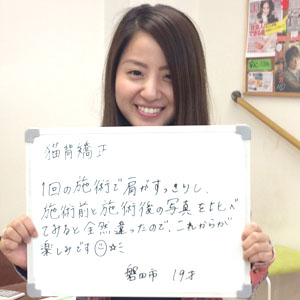 猫背矯正
1回の施術で肩がすっきりし、
施術前と施術後の写真を比べ
てみると全然違ったので、これからが
楽しみです☺☆ミ
磐田市 19才